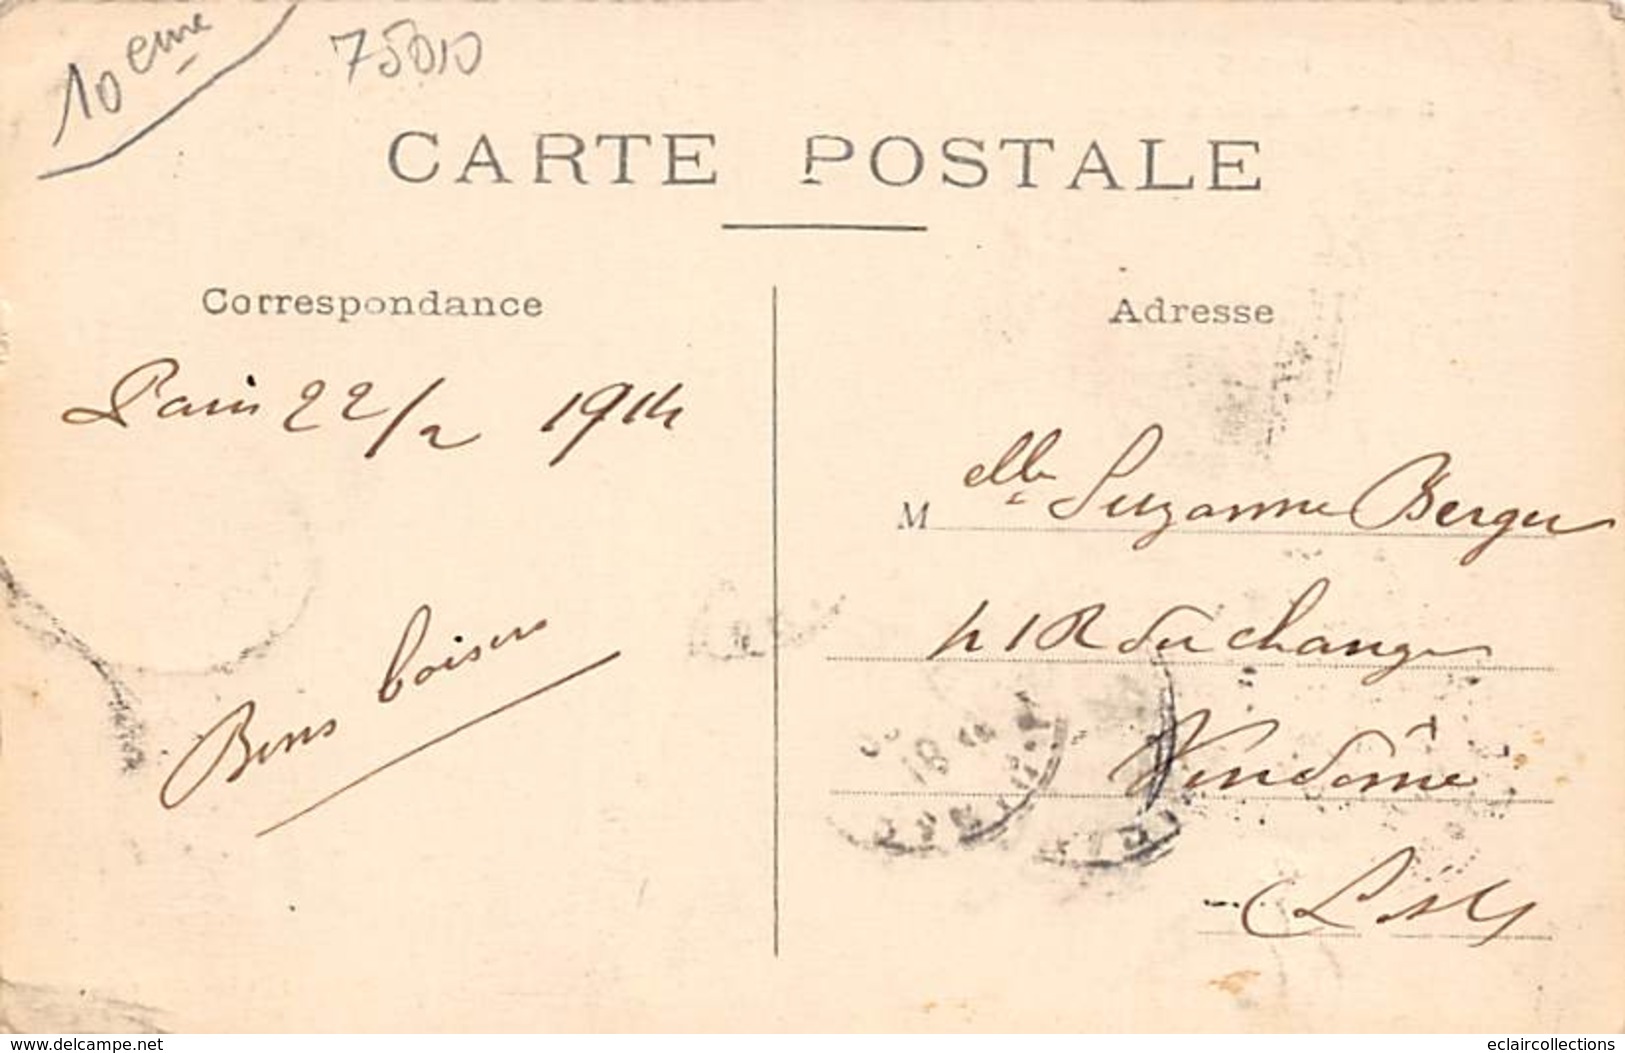 10 eme
75010
CARTE POSTALE
Correspondance
Paris 22/2 1914
Bons baisers
Adresse
M elle Suzanne Berger
41 R du change
Vendôme
L. et Ch
www.delcampe.net
eclaircollections